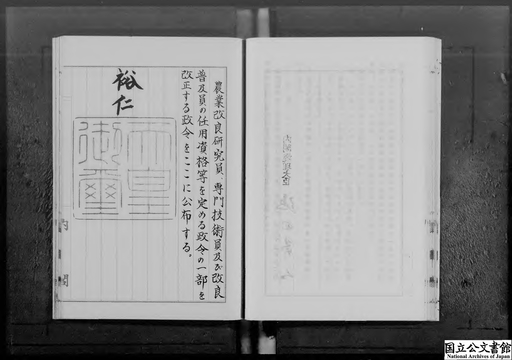 農業改良研究員、専門技術員及び改良
普及員の任用資格等を定める政令の一部を
改正する政令をここに公布する。
裕仁
天皇
御璽
内閣
国立公文書館
National Archives of Japan